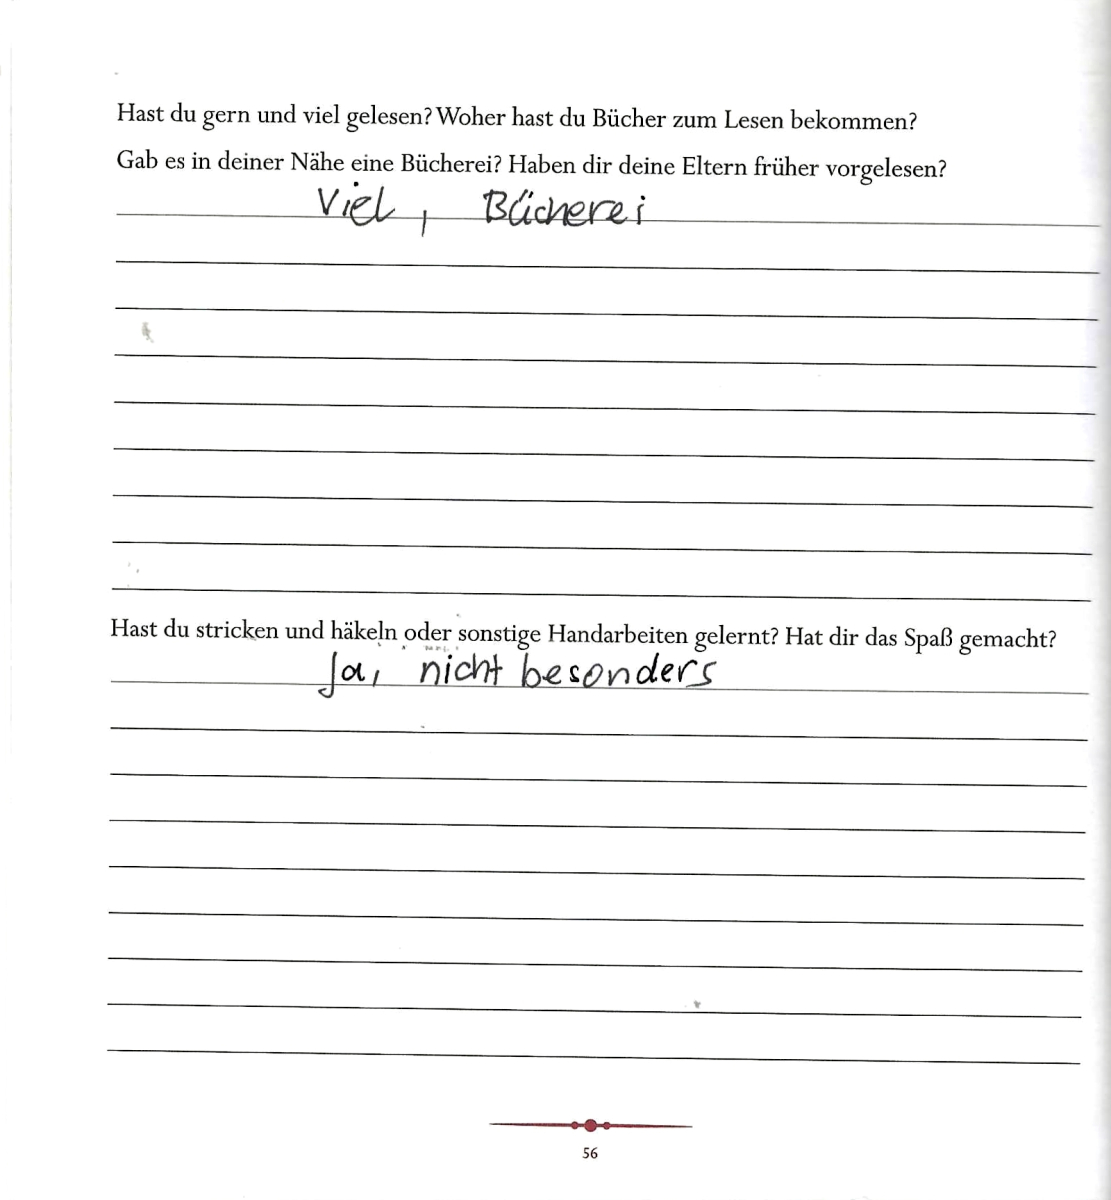 Hast du gern und viel gelesen? Woher hast du Bücher zum Lesen bekommen?
Gab es in deiner Nähe eine Bücherei? Haben dir deine Eltern früher vorgelesen?
Viel, Bücherei
Hast du stricken und häkeln oder sonstige Handarbeiten gelernt? Hat dir das Spaß gemacht?
Ja, nicht besonders
56